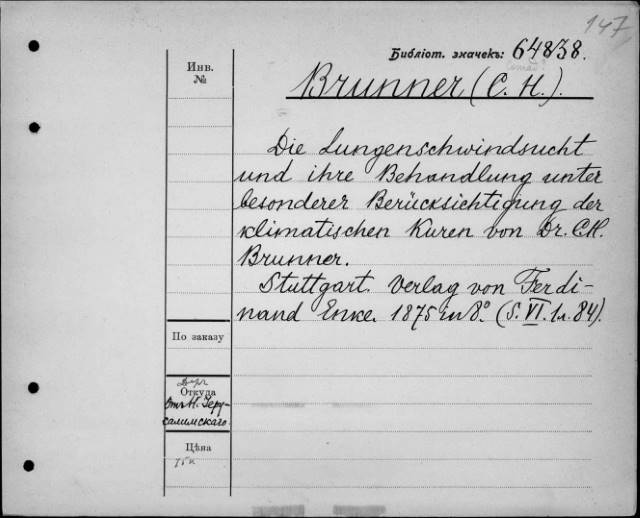 147
Библіот. значекъ: 64838.
Инв.
№
Brunner (C. H.).
Die Lungenschwindsucht
und ihre Behandlung unter
besonderer Berücksichtigung der
klimatischen Kuren von Dr. C.H.
Brunner.
Stuttgart. Verlag von Ferdi-
nand Enke. 1875 in 8°. (S. VI. 1 л. 84).
По заказу
Откуда
М. Іеру-
салимскаго
Цѣна
75 к